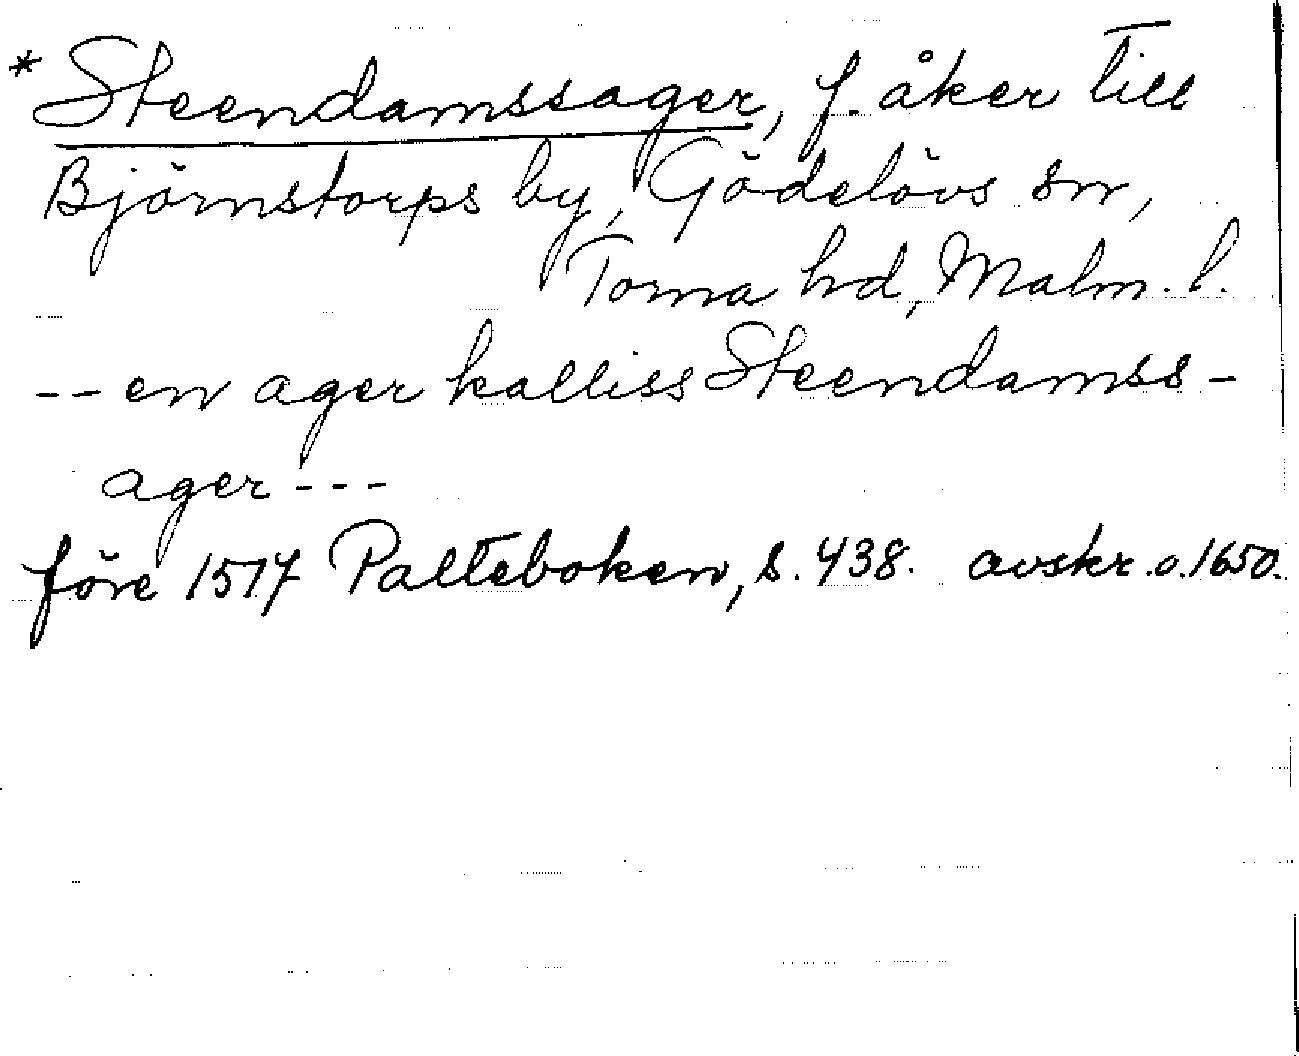 * Steendamssager, f. åker till
Björnstorps by, Gödelövs sn,
Torna hd, Malm. l.
-- en ager kalliss Steendamss-
ager ---
före 1517 Palteboken, s. 438. avskr. o. 1650.